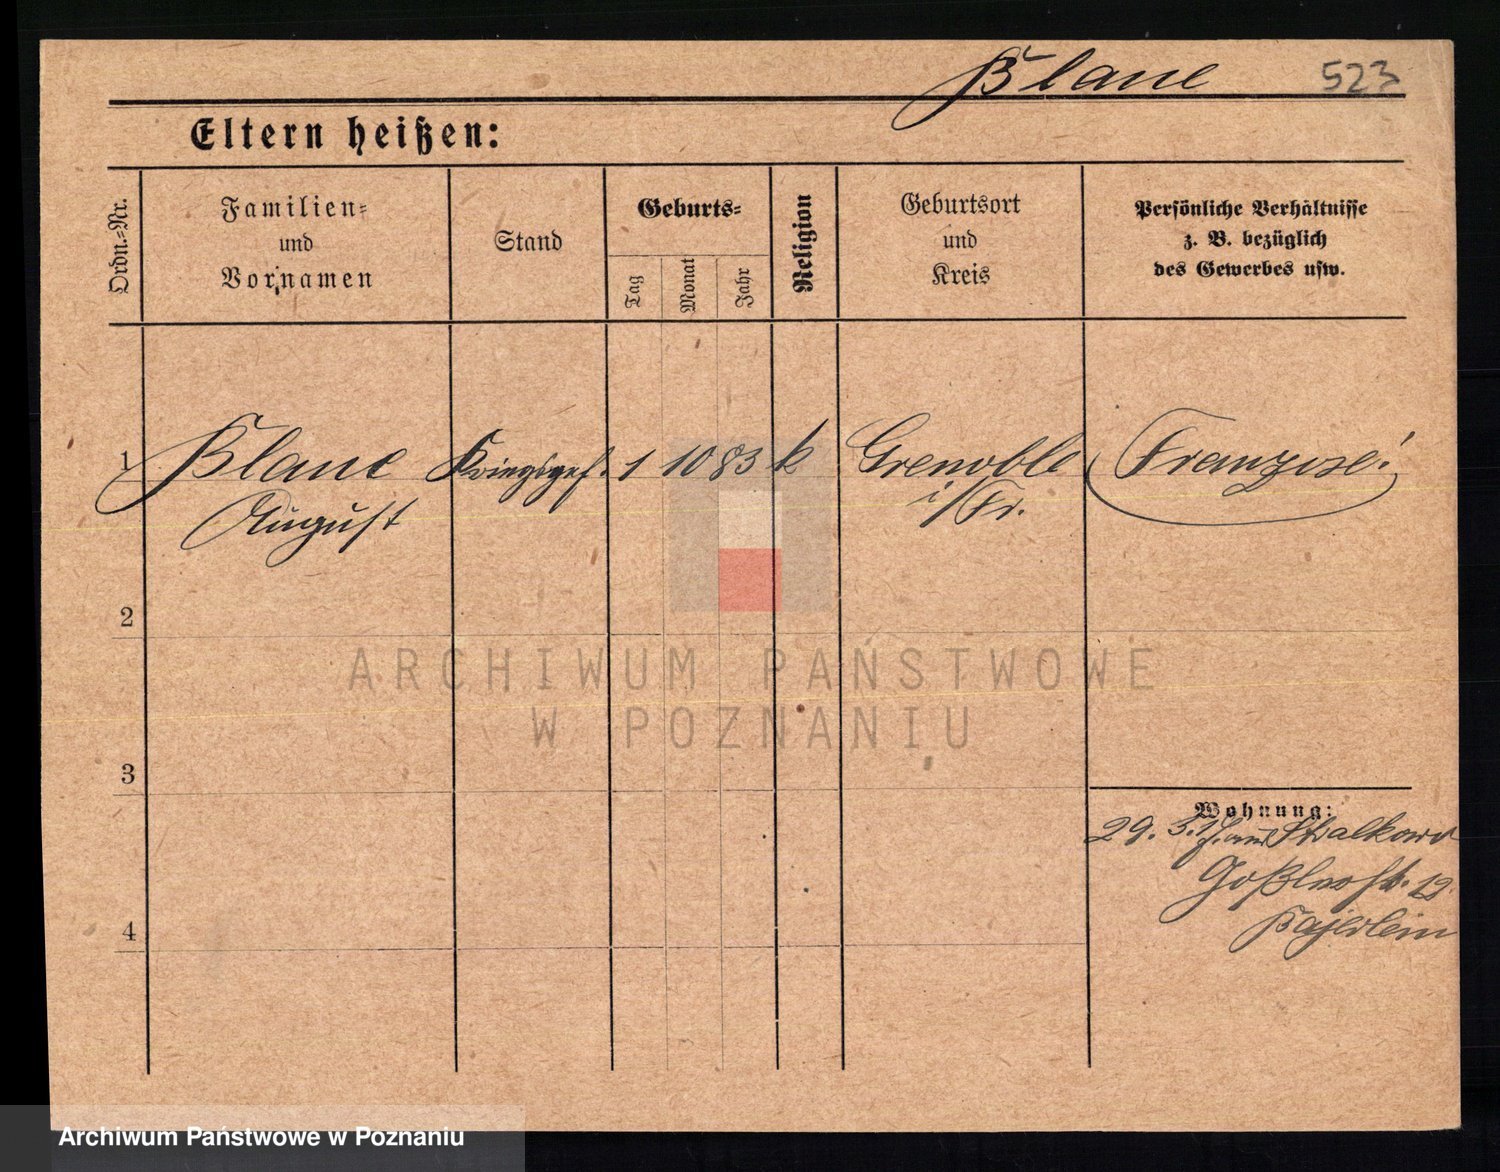 Blanc 523
Eltern heißen:
Ordn.=Nr.
Familien=
und
Vornamen
Stand
Geburts=
Tag
Monat
Jahr
Religion
Geburtsort
und
Kreis
Persönliche Verhältnisse
z. B. bezüglich
des Gewerbes usw.
1 Blanc Kriegsgef. 1 10 83 k Grenoble Franzose!
August i/Fr.
2
ARCHIWUM PAŃSTWOWE
W POZNANIU
3
Wohnung:
29. 5. Stralkowo
Goßlerstr. 12
Bajerlein
4
Archiwum Państwowe w Poznaniu